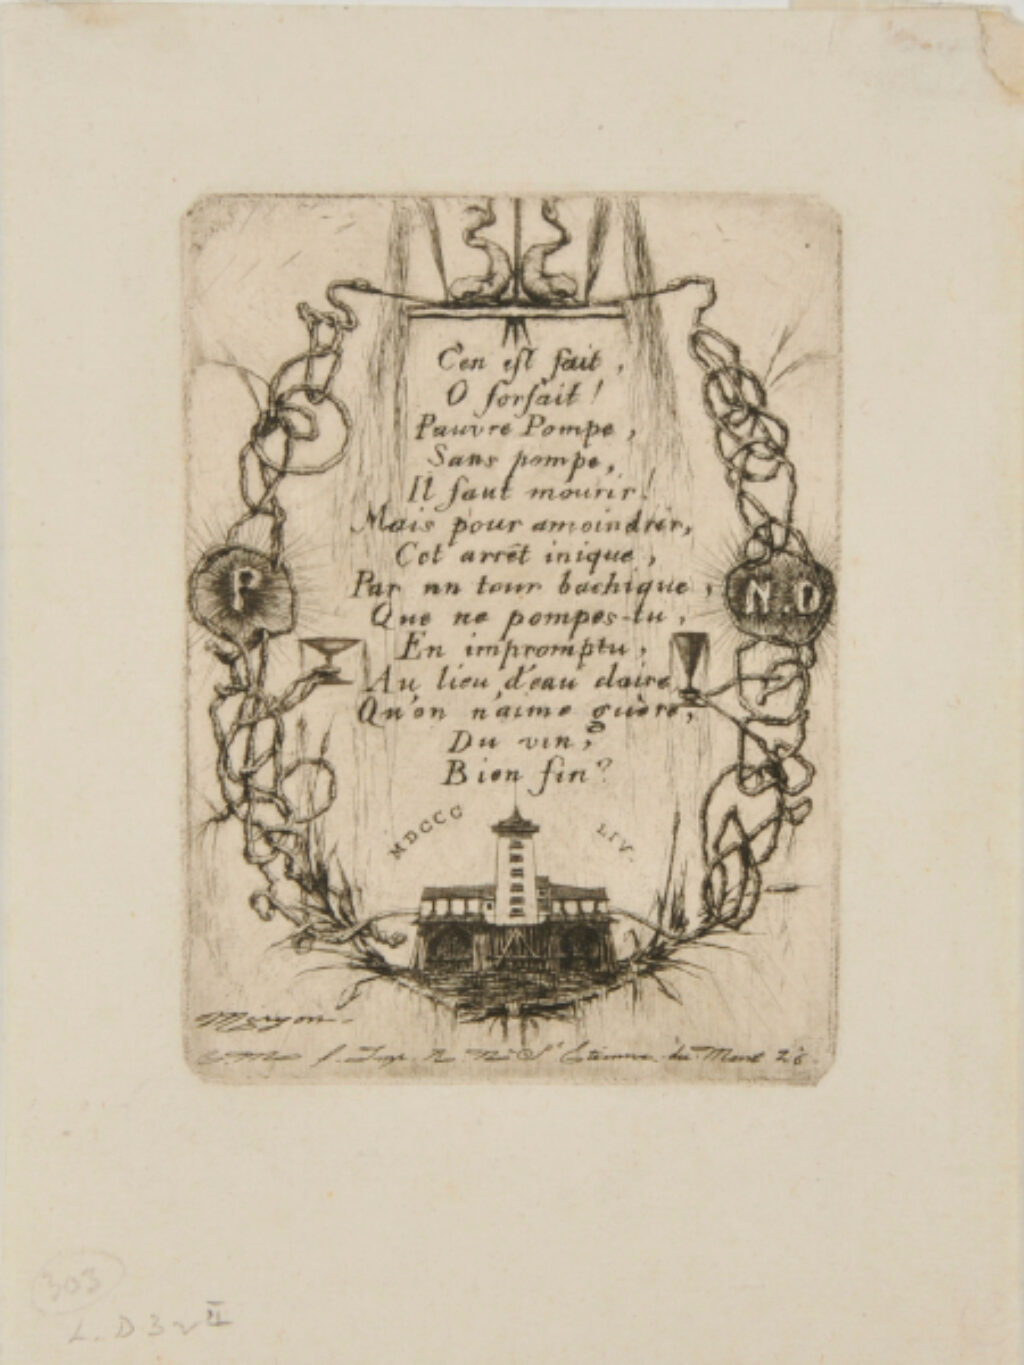 C'en est fait,
O forfait!
Pauvre Pompe,
Sans pompe,
Il faut mourir!
Mais pour amoindrir,
Cet arrêt inique,
Par un tour bachique,
Que ne pompes-tu,
En impromptu,
Au lieu d'eau claire
Qu'on n'aime guère,
Du vin,
Bien fin?
P
N.D
MDCCC LIV.
Meryon.
St Etienne du Mont 26.
303
L. D 32 II